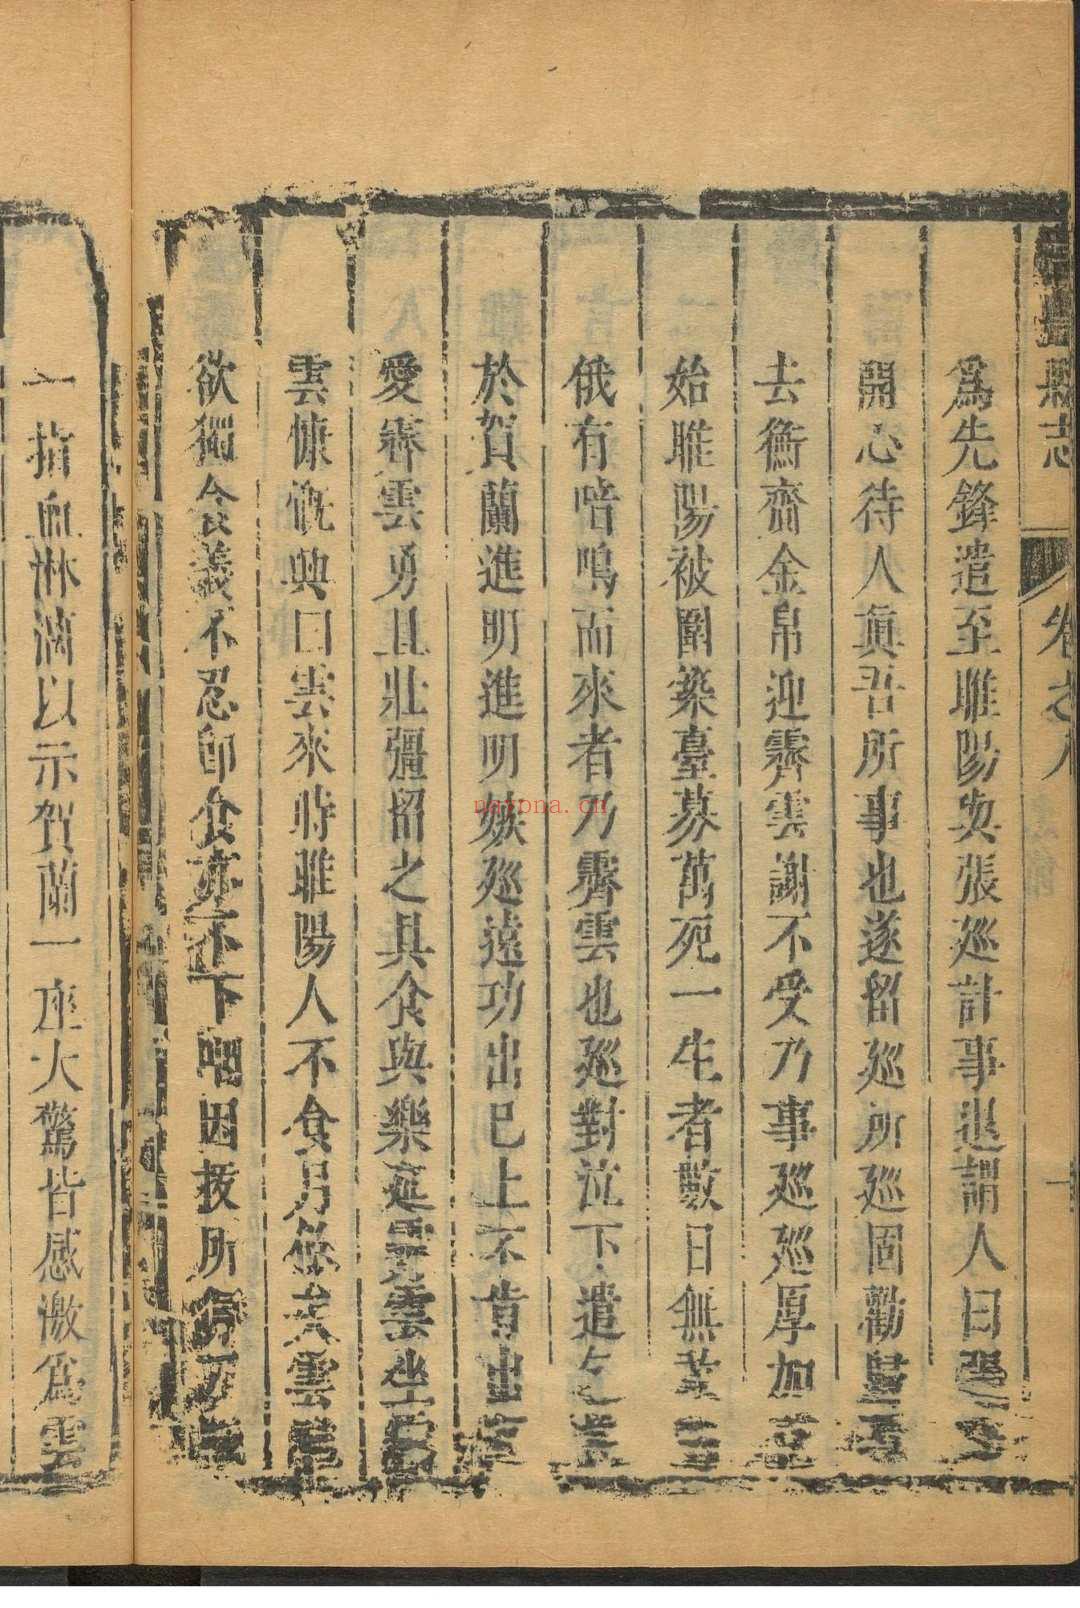 縣志 卷之八
爲先鋒遣至睢陽與張巡計事退謂人曰張公
開心待人眞吾所事也遂留巡所巡固勸歸不
去衡齎金帛迎霽雲謝不受乃事巡巡厚加
始睢陽被圍築臺募萬死一生者數日無
俄有喑嗚而來者乃霽雲也巡對泣下遣
於賀蘭進明進明嫉巡遠功出已上不肯出
愛霽雲勇且壯彊留之具食與樂延霽雲坐
雲慷慨與曰雲來時睢陽人不食月餘矣雲
欲獨食義不忍卽食亦不下咽因拔所
一指血淋漓以示賀蘭一座大驚皆感激爲雲
nayona.cn